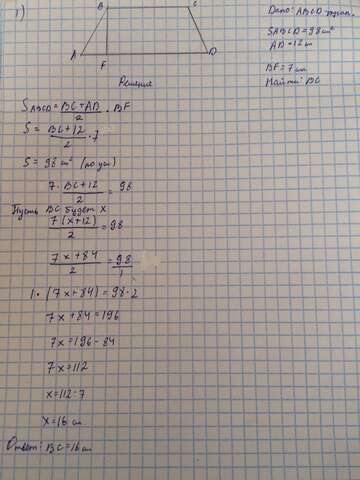 1)
B C
A F D
Дано: ABCD-трапец.
SABCD=98см²
AD=12см
BF=7см
Найти: BC
Решение
SABCD=BC+AD/2 · BF
S=BC+12/2 · 7
S=98см² (по усл)
7·BC+12/2=98
Пусть BC будет x
7(x+12)/2=98
7x+84/2=98/1
1·(7x+84)=98·2
7x+84=196
7x=196-84
7x=112
x=112-7
x=16 см
Ответ: BC=16см